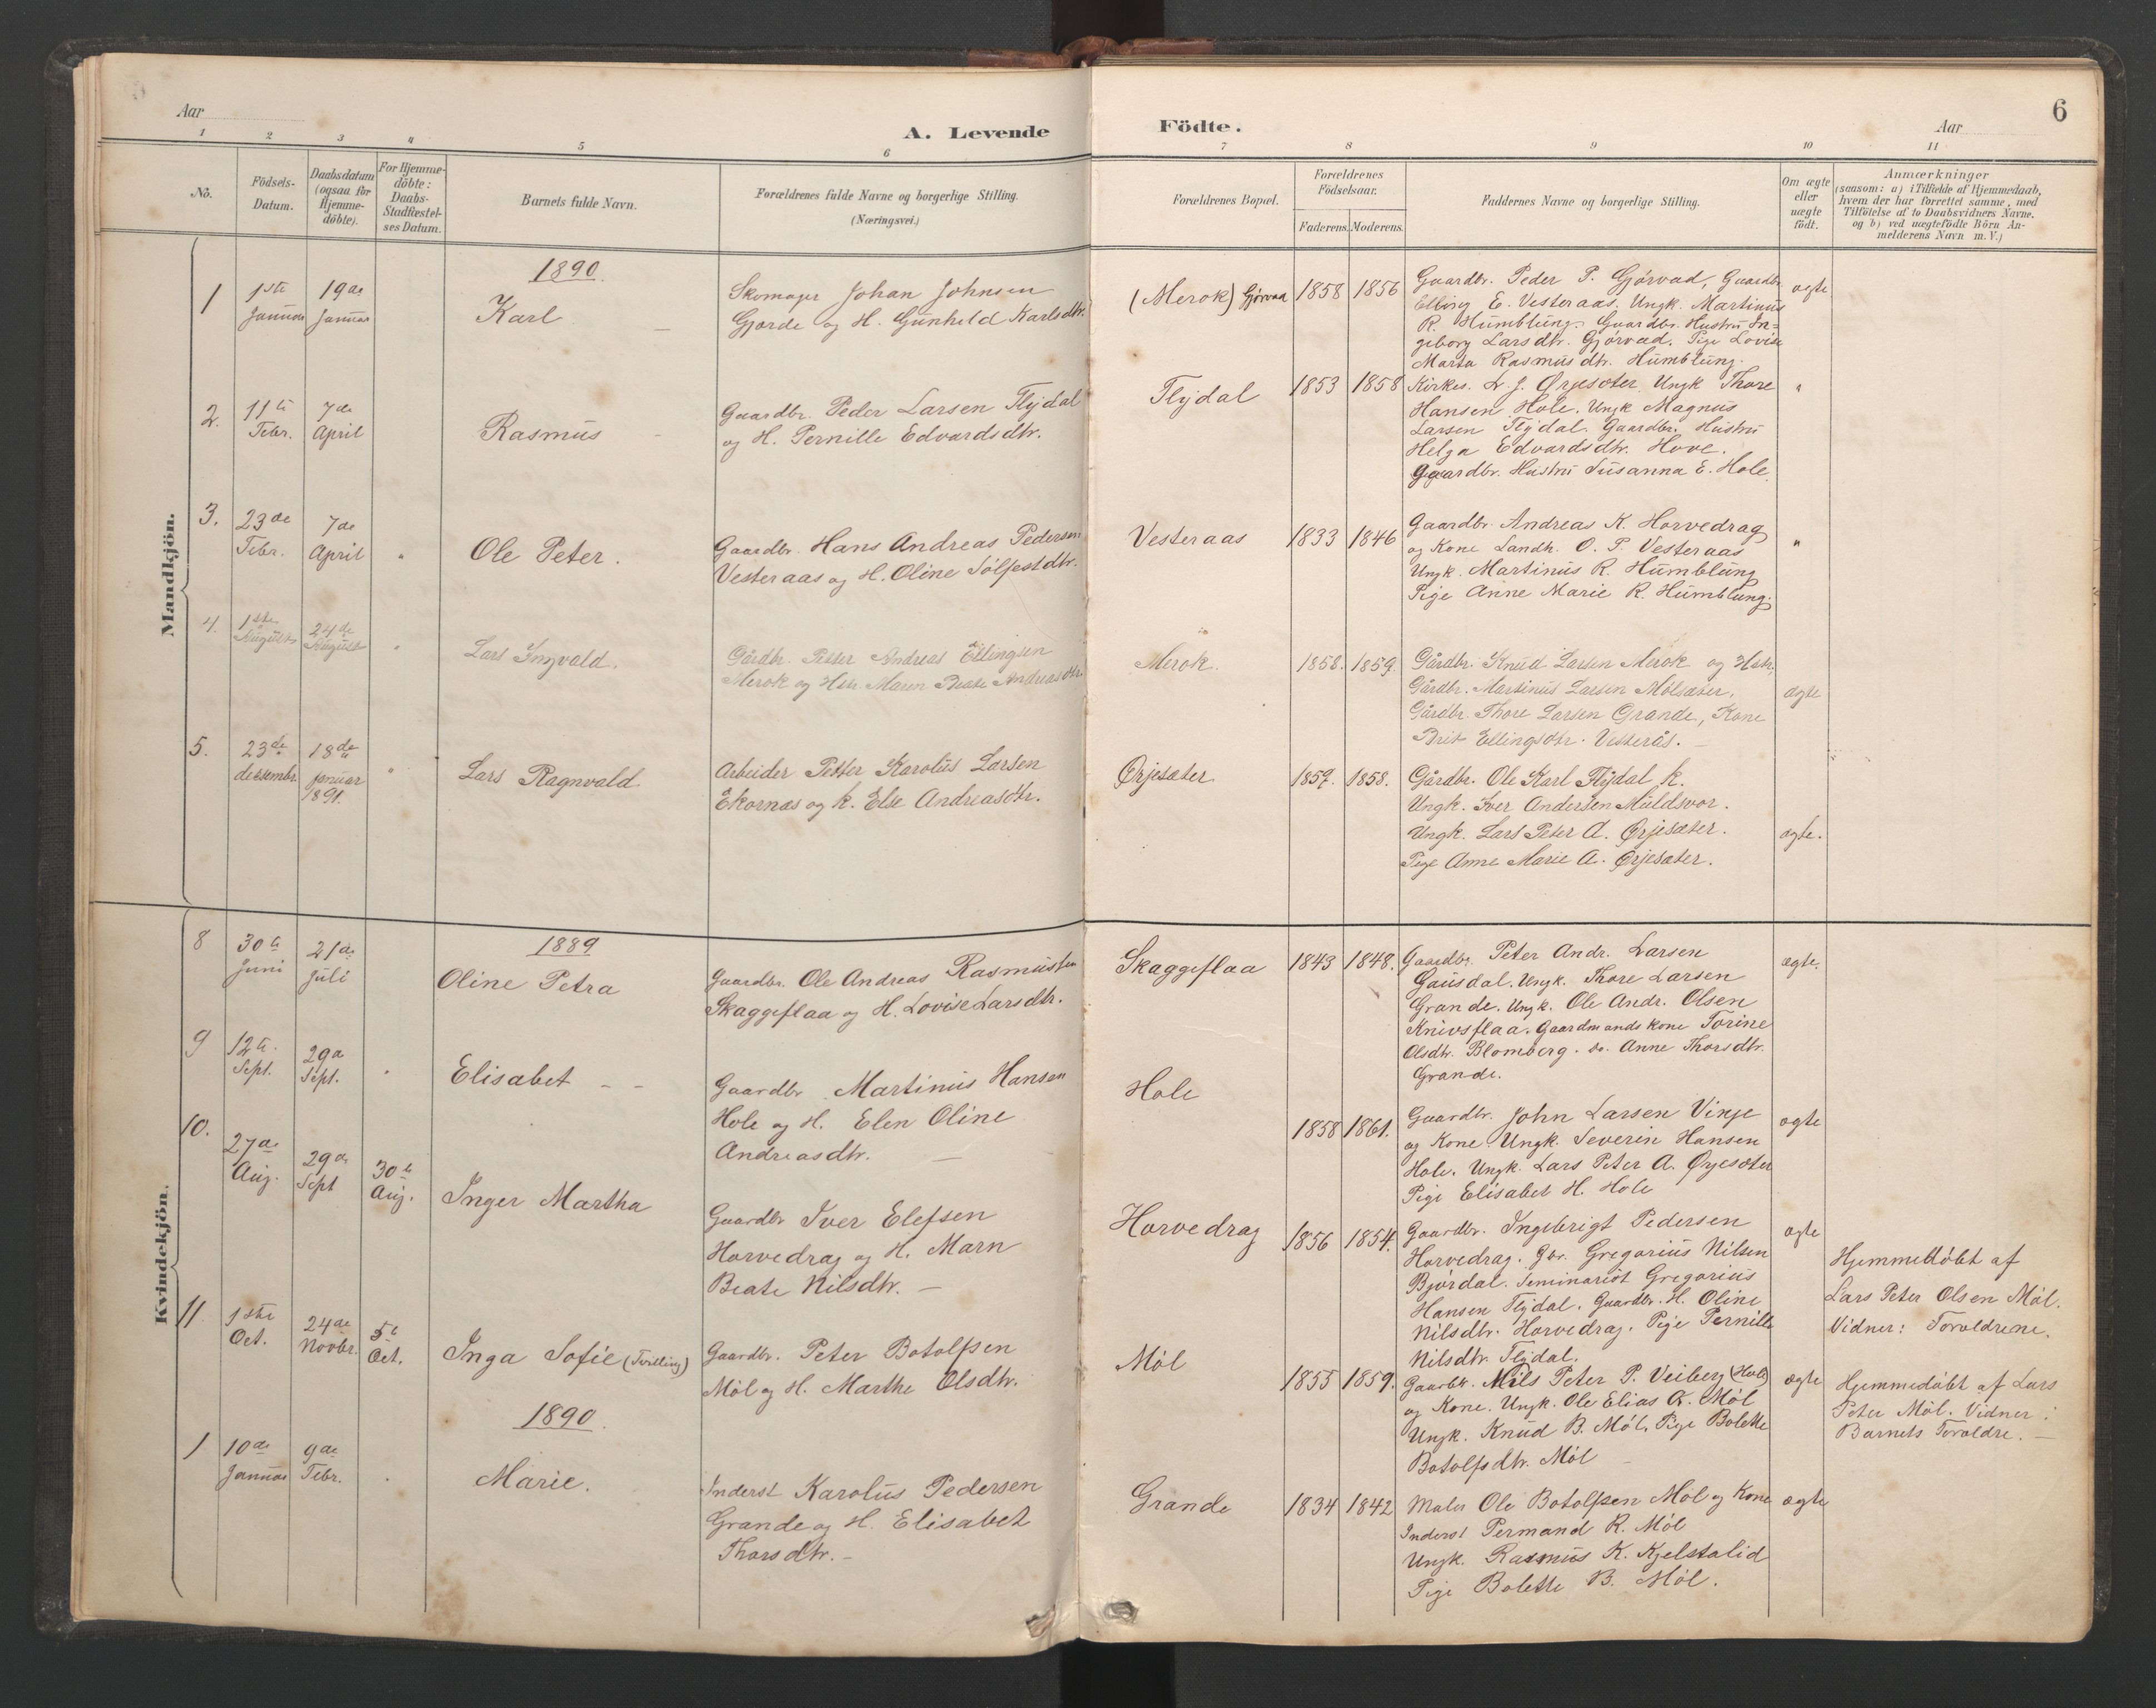 6
Aar
A. Levende Födte.
Aar
1 2 3 4 5 6 7 8 9 10 11
No.
Födsels-
Datum.
Daabsdatum
(ogsaa for
Hjemme-
döbte).
For Hjemme-
döbte:
Daabs-
Stadfæstel-
ses Datum.
Barnets fulde Navn.
Forældrenes fulde Navne og borgerlige Stilling.
(Næringsvei.)
Forældrenes Bopæl.
Forældrenes
Födselsaar.
Faderens. Moderens.
Faddernes Navne og borgerlige Stilling.
Om ægte
eller
uægte
födt.
Anmærkninger
(saasom: a) i Tilfælde af Hjemmedaab,
hvem der har forrettet samme, med
Tilföielse af to Daabsvidners Navne.
og b) ved uægtefödte Börn An-
melderens Navn m. V.)
Mandkjön.
1890.
1
1ste
Januar
19de
Januar
Karl
Skomager Johan Johnsen
Gjørde og H. Gunhild Karlsdtr.
(Merok) Gjørvad
1858 1856
Gaardbr. Peder P. Gjørvad, Gaardbr.
Elling E. Vesteraas. Ungk. Martinus
R. Humblung. Gaardbr. Hustru In=
geborg Larsdtr. Gjørvad. Pige Lovise
Marta Rasmusdtr. Humblung.
ægte
2.
11te
Febr.
7de
April
Rasmus
Gaardbr. Peder Larsen Flydal
og H. Pernille Edvardsdtr.
Flydal
1853 1858
Kirkes. L. J. Ørjesæter Ungk Thore
Hansen Hole. Ungk Magnus
Larsen Flydal. Gaardbr. Hustru
Helga Edvardsdtr. Hove.
Gaardbr. Hustru Susanna E. Hole.
"
3.
23de
Febr.
7de
April
"
Ole Peter.
Gaardbr. Hans Andreas Pedersen
Vesteraas og H. Oline Sølfestdtr.
Vesteraas
1833 1846
Gaardbr. Andreas K. Horvedrag
og Kone Landh. O. P. Vesteraas
Ungk. Martinus R. Humblung
Pige Anne Marie R. Humblung.
"
4.
1ste
August
24de
August
"
Lars Ingvald.
Gårdbr. Petter Andreas Ellingsen
Merok og Hstr. Maren Beate Andreasdtr.
Merok.
1858. 1859.
Gårdbr. Knud Larsen Merok og Hstr.
Gårdbr. Martinus Larsen Mølsæter.
Gårdbr. Thore Larsen Grande, Kone
Brit Ellingsdtr. Vesterås. —
ægte
5.
23de
desembr.
18de
januar
1891.
"
Lars Ragnvald.
Arbeider Petter Karolus Larsen
Ekornæs og k. Else Andreasdtr.
Ørjesæter
1859. 1858.
Gårdbr. Ole Karl Flydal k.
Ungk. Iver Andersen Muldsvor.
Ungk. Lars Peter A. Ørjesæter.
Pige Anne Marie A. Ørjesæter.
ægte.
Kvindekjön.
1889
8
30te
Juni
21de
Juli
Oline Petra
Gaardbr. Ole Andreas Rasmussen
Skaggeflaa og H. Lovise Larsdtr.
Skaggeflaa
1843 1848.
Gaardbr. Peter Andr. Larsen
Gausdal. Ungk. Thore Larsen
Grande. Ungk. Ole Andr. Olsen
Knivsflaa. Gaardmands kone Torine
Olsdtr. Blomberg. do. Anne Thorsdtr.
Grande.
ægte.
9
12te
Sept.
29de
Sept.
"
Elisabet - -
Gaardbr. Martinus Hansen
Hole og H. Elen Oline
Andreasdtr. —
Hole
1858 1861.
Gaardbr. John Larsen Vinje
og Kone. Ungk. Severin Hansen
Hole. Ungk. Lars Peter A. Ørjesæter
Pige Elisabet H. Hole
ægte
10.
27de
Aug.
29de
Sept
30te
Aug.
Inger Martha
Gaardbr Iver Elefsen
Horvedrag og H. Marn
Beate Nilsdtr. —
Horvedrag
1856 1854.
Gaardbr. Ingebrigt Pedersen
Horvedrag. Gbr. Gregorius Nilsen
Bjørdal. Seminarist Gregorius
Hansen Flydal. Gaardbr. H. Oline
Nilsdtr. Horvedrag. Pige Pernille
Nilsdtr. Flydal.
ægte
Hjemmedøbt af
Lars Peter Olsen Møl.
Vidner: Forældrene.
11.
1ste
Oct.
24de
Novbr.
5te
Oct.
Inga Sofie (Tvilling)
Gaardbr. Peter Botolfsen
Møl og H. Marthe Olsdtr.
Møl
1855 1859.
Gaardbr. Nils Peter P. Veiberg (Hole)
og Kone. Ungk. Ole Elias R. Møl
Ungk. Knud B. Møl. Pige Bolette
Botolfsdtr. Møl —
ægte
Hjemmedøbt af Lars
Peter Møl. Vidner:
Barnets Forældre. —
1890.
1
10de
Januar
9de
Febr.
"
Marie.
Inderst Karolus Pedersen
Grande og H. Elisabet
Thorsdtr. —
Grande
1834 1842
Maler Ole Botolfsen Møl og Kone
Inderst Permand R. Møl
Ungk. Rasmus K. Kjelstalid
Pige Bolette B. Møl.
ægte